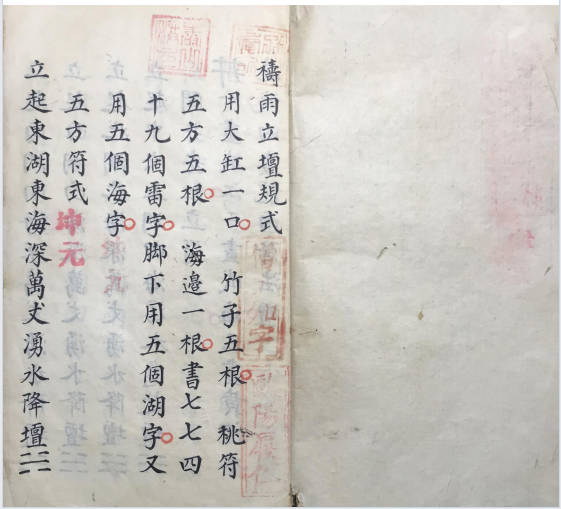 禱雨立壇規式
用大缸一口竹子五根秘符
五方五根海邊一根書七七四
十九個雷字脚下用五個湖字又
用五個海字
五方符式
坤元
立起東湖東海深萬丈湧水降壇